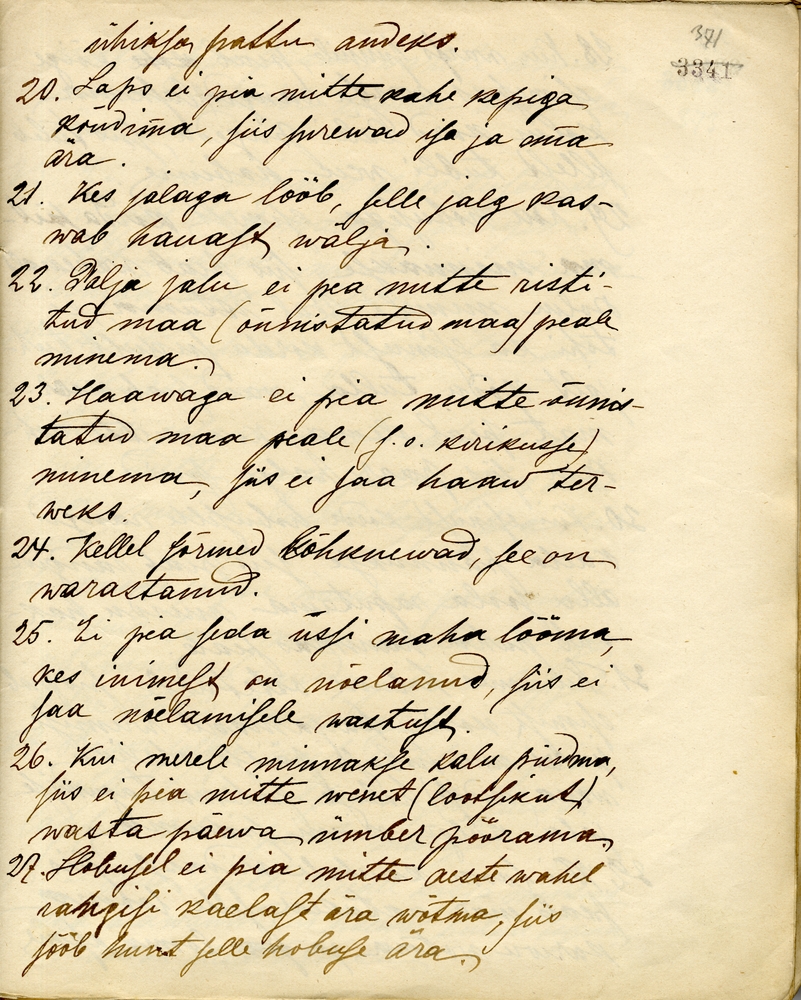 341
3341
ühiksa pattu andeks.
20. Laps ei pia mitte kahe kepiga
kõndima, siis surewad isa ja ema
ära.
21. Kes jalaga lööb, selle jalg kas-
wab hauast wälja.
22. Palja jalu ei pea mitte risti-
tud maa (õnnistatud maa) peale
minema.
23. Haawaga ei pia mitte õnnis-
tatud maa peale (s.o. kirikusse)
minema, siis ei saa haaw ter-
weks.
24. Kellel sõrmed lõhknewad, see on
warastanud.
25. Ei pea seda ussi maha lööma,
kes inimest on nõelanud, siis ei
saa nõelamisele wastust.
26. Kui merele minnakse kalu püüdma,
siis ei pea mitte wenet (lootsikut)
wasta päewa ümber pöörama.
27. Hobusel ei pia mitte aeste wahel
rahgisi kaelast ära wõtma, siis
sööb hunt selle hobuse ära.